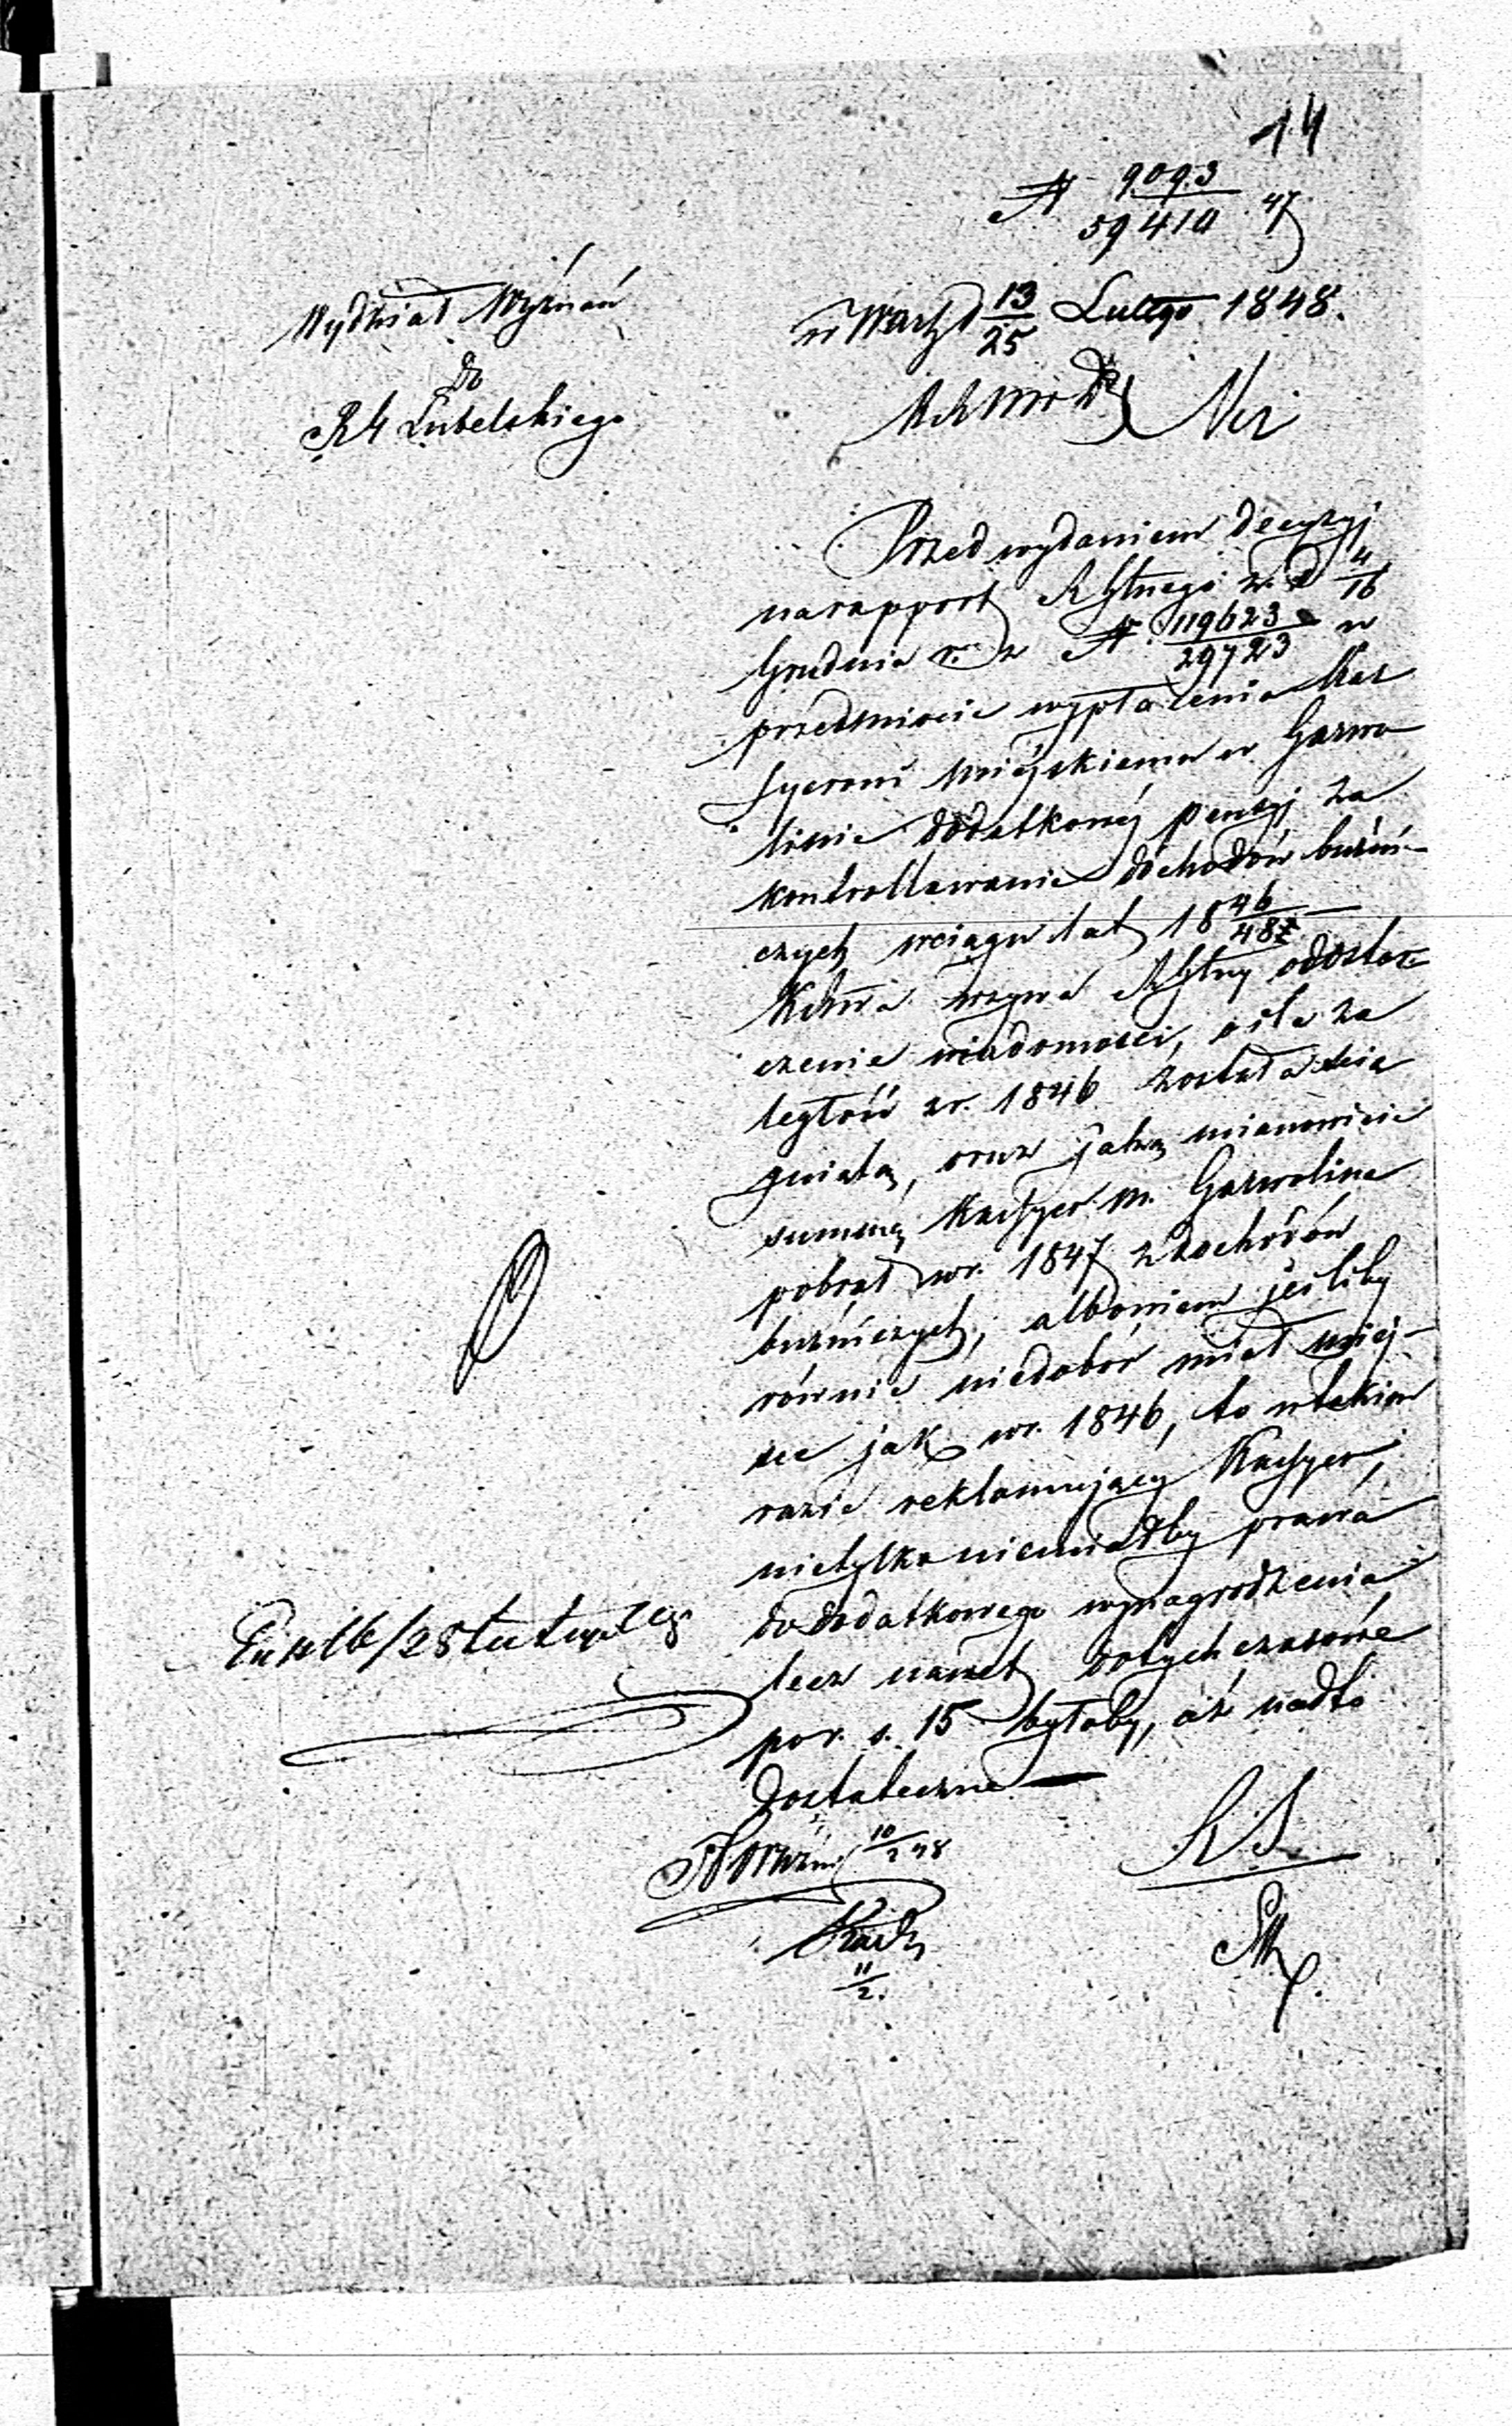 14
№ 9093/59410 47
Wydział Wyznań
do
RG Lubelskiego
w Warsz d 13/25 Lutego 1848.
Przed wydaniem decyzyj
na rapport Rządu Głnego z d 4/16
Grudnia r. z № 119623/29723 w
przedmiocie wypłacenia Kas
syerowi Miejskiemu w Garwo
linie dodatkowej pensyj za
kontrollowanie dochodów bużni-
czych wciągu lat 1846/48
wzywa Rząd Głny o dostar
czenie wiadomości, o ile za
ległość z r. 1846 została ścią
gniętą, oraz jaką mianowicie
summę Kassyer m. Garwolina
pobrał w r. 1847 z dochodów
bużniczych; albowiem jeśliby
równie niedobór miał miej-
sce jak w r. 1846, to w takim
razie reklamujący Kassyer,
nietylko niemiałby prawa
do dodatkowego wynagrodzenia
lecz nawet dotychczasowe
po r. s. 15 byłoby, aż nadto
dostateczne
10/2 48
11/2.